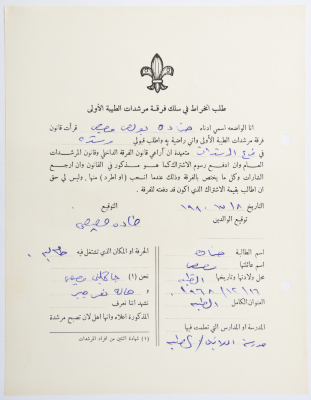 طلب انخراط في سلك فرقة مرشدات الطيبة الأولى
انا الواضعه اسمي ادناه حنان بولص بصيص قرأت قانون
فرقة مرشدات الطيبة الأولى واني راضية به واطلب قبولي مرشدة
في فوج المرشدات متعهدة ان أراعي قانون الفرقة الداخلي وقانون المرشدات
العام وان ادفع رسوم الاشتراك كما هو مذكور في القانون وان ارجع
الشارات وكل ما يختص بالفرقة وذلك عندما انسحب (او اطرد) منها، وليس لي حق
ان اطالب بقيمة الاشتراك الذي اكون قد دفعته للفرقة.
التاريخ ١٨/ ٣/ ١٩٨٠ التوقيع
توقيع الوالدين
اسم الطالبة حنان
اسم عائلتها بصيص
محل ولادتها وتاريخها الطيبة
١٦/ ١٢/ ١٩٦٨
العنوان الكامل الطيبة
المدرسة او المدارس التي تعلمت فيها
مدرسة اللاتين / الطيبة
الحرفة او المكان الذي تشتغل فيه طالبة
نحن (١)
و هالة
نشهد اننا نعرف
المذكورة اعلاه وانها اهل لان تصبح مرشدة
(١) شهادة اثنتين من افراد المرشدات